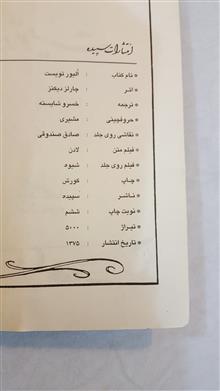 انتشارات سپیده
* نام کتاب : الیور تویست
* اثـر : چارلز دیکنز
* ترجمه : خسرو شایسته
* حروفچینی : مشیری
* نقاشی روی جلد : صادق صندوقی
* فیلم متن : لادن
* فیلم روی جلد : شیوه
* چـاپ : کورش
* نـاشـر : سپیده
* نوبت چاپ : ششم
* تیـراژ : ۵۰۰۰
* تاریخ انتشار : ۱۳۷۵